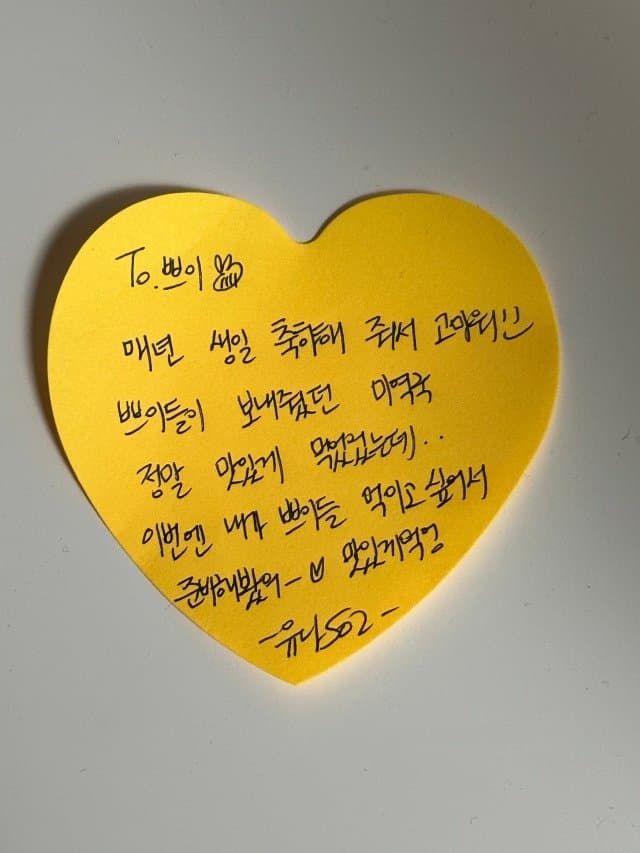 To. 쁘이
매년 생일 축하해 줘서 고마워!!
쁘이들이 보내줬던 미역국
정말 맛있게 먹었었는데..
이번엔 내가 쁘이들 먹이고 싶어서
준비해봤어~ 맛있게먹엉